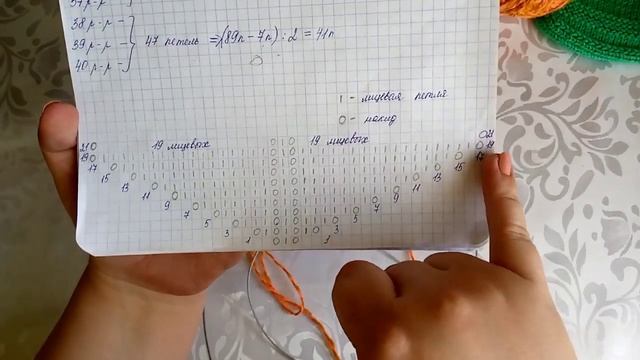 38 р-р -
39 р-р - } 47 петель = (89п - 7п) : 2 = 41п
40 р-р -
| - лицевая петля
О - накид
21 19 лицевых 19 лицевых 21
19 19
17 17
15 15
13 13
11 11
9 9
7 7
5 5
3 3
1 1